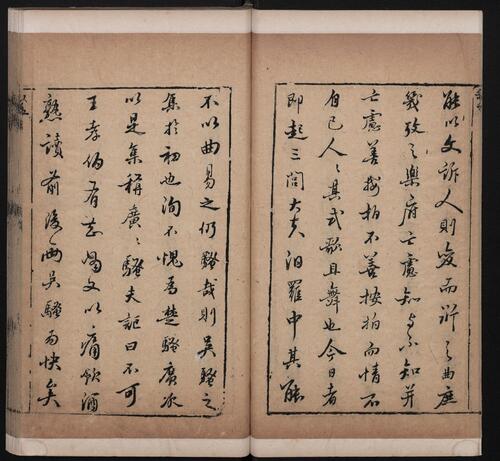 能以文訴人則變而訴之曲庶
幾攷之樂府亡慮知與不知并
亡慮善按拍不善按拍而情不
自已人〻其式歌且舞也今日者
即起三閭大夫汨羅中其能
不以曲易之仍騷哉則吳騷之
集於初也洵不愧為楚騷廣次
以是集稱廣〻騷夫誰曰不可
王孝伯有知當又以痛飲酒
熟讀前後兩吳騷為快矣